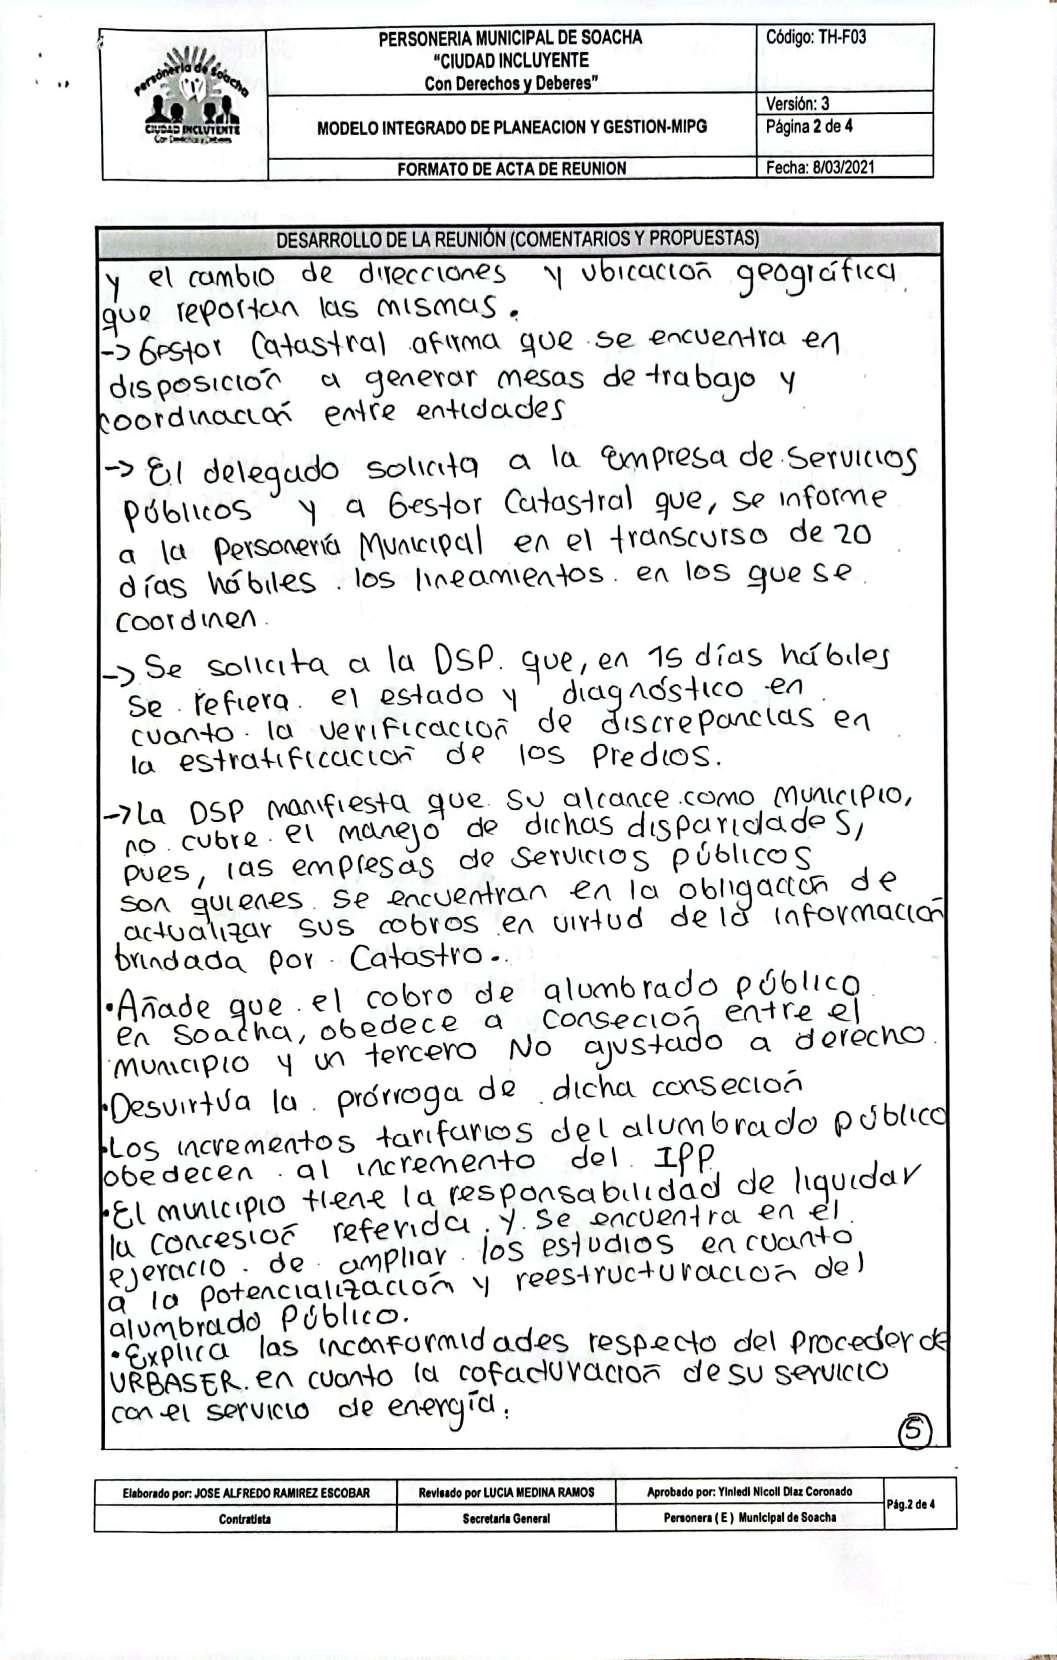 Personería de Soacha
CIUDAD INCLUYENTE
Con Derechos y Deberes
PERSONERIA MUNICIPAL DE SOACHA
"CIUDAD INCLUYENTE
Con Derechos y Deberes"
Código: TH-F03
MODELO INTEGRADO DE PLANEACION Y GESTION-MIPG
Versión: 3
Página 2 de 4
FORMATO DE ACTA DE REUNION
Fecha: 8/03/2021
DESARROLLO DE LA REUNIÓN (COMENTARIOS Y PROPUESTAS)
y el cambio de direcciones y ubicación geográfica
que reportan las mismas.
-> Gestor Catastral afirma que se encuentra en
disposición a generar mesas de trabajo y
coordinación entre entidades
-> El delegado solicita a la Empresa de Servicios
Públicos y a Gestor Catastral que, se informe
a la Personería Municipal en el transcurso de 20
días hábiles los lineamientos en los que se
coordinen.
-> Se solicita a la DSP. que, en 15 días hábiles
se refiera el estado y diagnóstico en
cuanto la verificación de discrepancias en
la estratificación de los predios.
-> La DSP manifiesta que su alcance como municipio,
no cubre el manejo de dichas disparidades,
pues, las empresas de servicios públicos
son quienes se encuentran en la obligación de
actualizar sus cobros en virtud de la información
brindada por Catastro.
• Añade que el cobro de alumbrado público
en Soacha, obedece a conseción entre el
municipio y un tercero No ajustado a derecho.
• Desvirtúa la prórroga de dicha conseción
• Los incrementos tarifarios del alumbrado público
obedecen al incremento del IPP
• El municipio tiene la responsabilidad de liquidar
la concesión referida. y se encuentra en el
ejercicio de ampliar los estudios en cuanto
a la potencialización y reestructuración del
alumbrado Público.
• Explica las inconformidades respecto del proceder de
URBASER en cuanto la cofacturación de su servicio
con el servicio de energía.
5
Elaborado por: JOSE ALFREDO RAMIREZ ESCOBAR
Revisado por LUCIA MEDINA RAMOS
Aprobado por: Yiniedi Nicoll Diaz Coronado
Pág.2 de 4
Contratista
Secretaria General
Personera ( E ) Municipal de Soacha